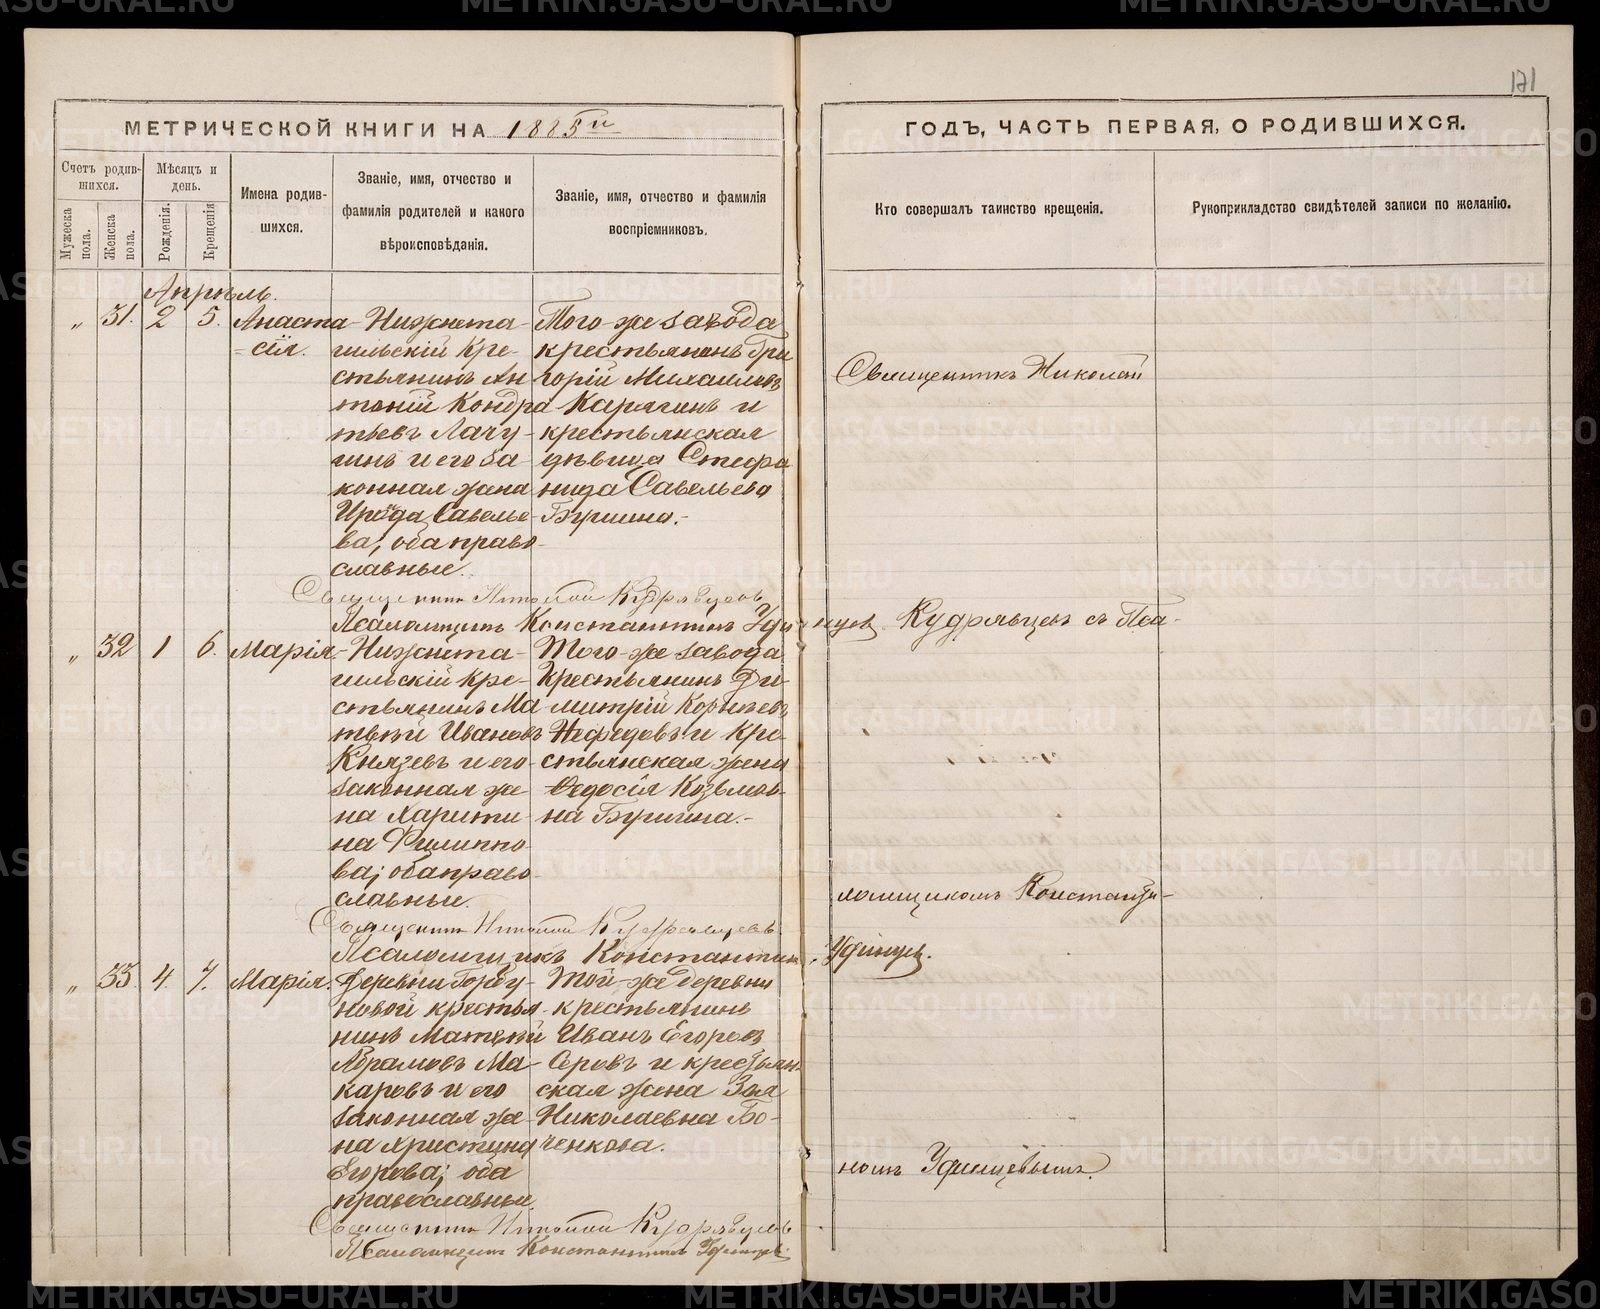 171
МЕТРИЧЕСКОЙ КНИГИ НА 1885 й
ГОДЪ, ЧАСТЬ ПЕРВАЯ, О РОДИВШИХСЯ.
Счетъ родив-
шихся.
Мѣсяцъ и
день.
Мужеска
пола.
Женска
пола.
Рожденія.
Крещенія
Имена родив-
шихся.
Званіе, имя, отчество и
фамилія родителей и какого
вѣроисповѣданія.
Званіе, имя, отчество и фамилія
воспріемниковъ.
Кто совершалъ таинство крещенія.
Рукоприкладство свидѣтелей записи по желанію.
Апрѣль.
„ 31. 2 5.
Анаста
-сія.
Нижнета-
гильскій кре-
стьянинъ Ан
тоній Кондра
тьевъ
и его за
конная жена
Савелье-
ва; оба право
славные.
Того-же завода
крестьянинъ Гри
горій Михаиловъ
Карягинъ и
крестьянская
дѣвица Стефа
нида Савельева
Священникъ Николай
Священникъ Николай Кудрявцевъ
Псаломщикъ Константинъ Удинцев
Кудрявцевъ съ Пса-
„ 32 1 6.
Марія.
Нижнета-
гильскій кре-
стьянинъ Ма
твѣй Ивановъ
Князевъ и его
законная же
на Харити-
на Филиппо
ва; оба право
славные.
Того-же завода
Крестьянинъ Ди-
митрій
Нефедовъ и кре
стьянская жена
Ѳедосія Козьми
на
ломщикомъ Константи-
Священникъ Николай Кудрявцевъ
Псаломщикъ Константинъ Удинцев.
„ 33 4. 7.
Марія.
Деревни Горбу-
новой крестья
нинъ Матѳей
Абрамовъ Ма-
каровъ и его
законная же
на Христина
Егорова; оба
православные.
Той-же деревни
крестьянинъ
Иванъ Егоровъ
Серовъ и крестьян
ская жена
Николаевна Бо-
ченкова.
номъ Удинцевымъ.
Священникъ Николай Кудрявцевъ
Псаломщикъ Константинъ Удинцевъ
METRIKI.GASO-URAL.RU